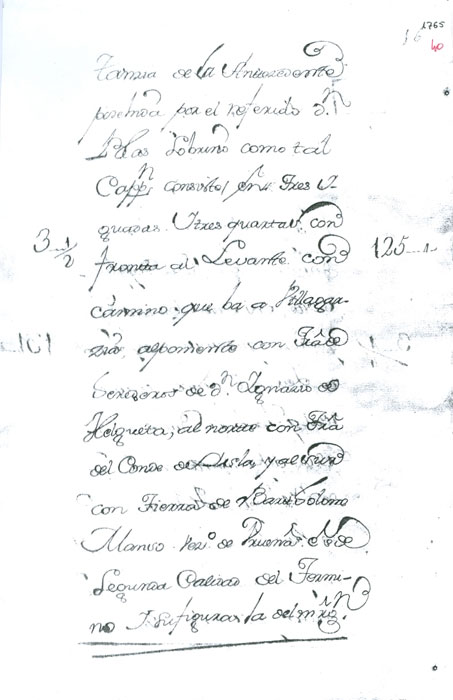 1765
16
40
tancia de la Antecedente
posehida por el referido Dn
Blas Lobrino como tal
Cappn consiste en Tres Y-
guadas Y tres quartas con
3 1/2
frontta al Levante con
125
camino que ba a Villagar-
zia alponiente con Tra de
herederos de Dn Ignazio de
Helgueta, al norte con Tra
del Conde de y al sur
con Tierra de Bartolome
Manso vezo de es de
Segunda Calidad del Termi-
no Y su figura es la del margn.